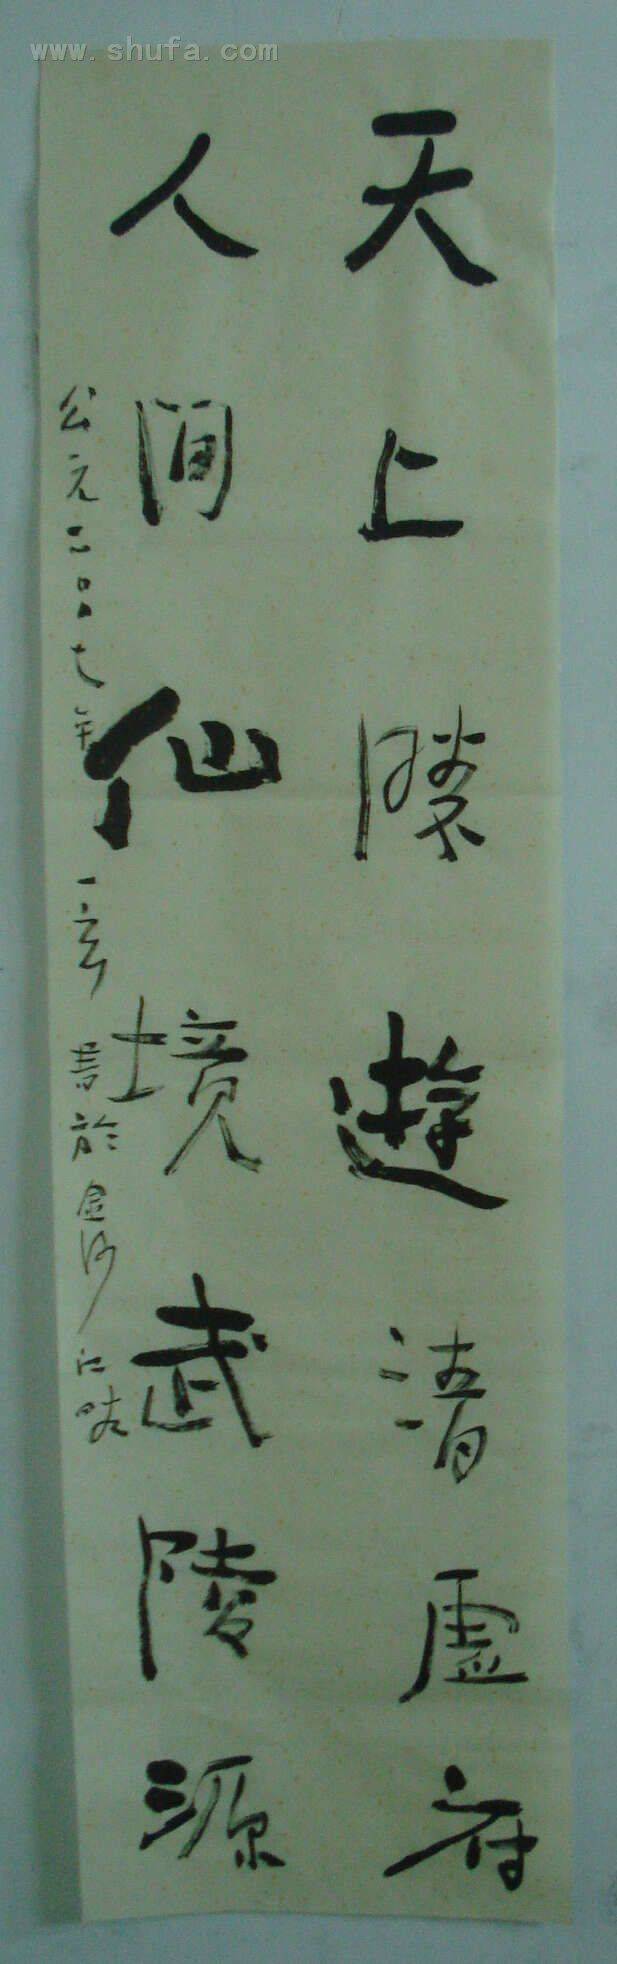 www.shufa.com
天上隙遊清虛府
人间仙境武陵源
公元二〇〇七年 一玄 書於金沙江畔